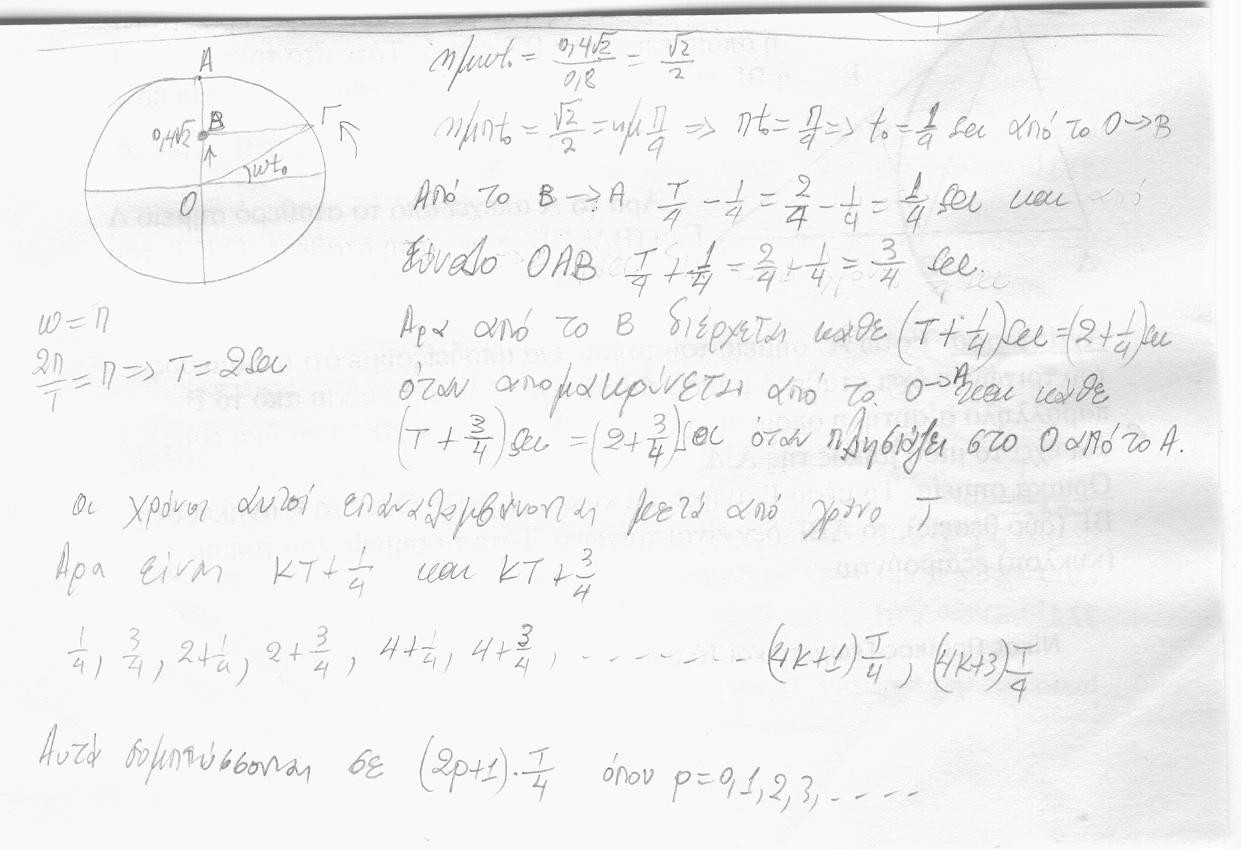 A
B
Γ
0,4√2
ωt₀
O
ημωt₀ = 0,4√2/0,8 = √2/2
ημπt₀ = √2/2 = ημ π/4 => πt₀ = π/4 => t₀ = 1/4 sec από το O → B
Από το B → A T/4 - 1/4 = 2/4 - 1/4 = 1/4 sec και
Σύνολο OAB T/4 + 1/4 = 2/4 + 1/4 = 3/4 sec.
ω = π
2π/T = π => T = 2sec
Αρα από το B διέρχεται κάθε (T + 1/4) sec = (2 + 1/4) sec
όταν απομακρύνεται από το O → A και κάθε
(T + 3/4) sec = (2 + 3/4) sec όταν πλησιάζει στο O από το A.
οι χρόνοι αυτοί επαναλαμβάνονται μετά από χρόνο T
Αρα είναι KT + 1/4 και KT + 3/4
1/4, 3/4, 2+1/4, 2+3/4, 4+1/4, 4+3/4, - - - - - - - (4K+1) T/4, (4K+3) T/4
Αυτά συμπτύσσονται σε (2p+1)·T/4 όπου p = 0,1,2,3, - - - -